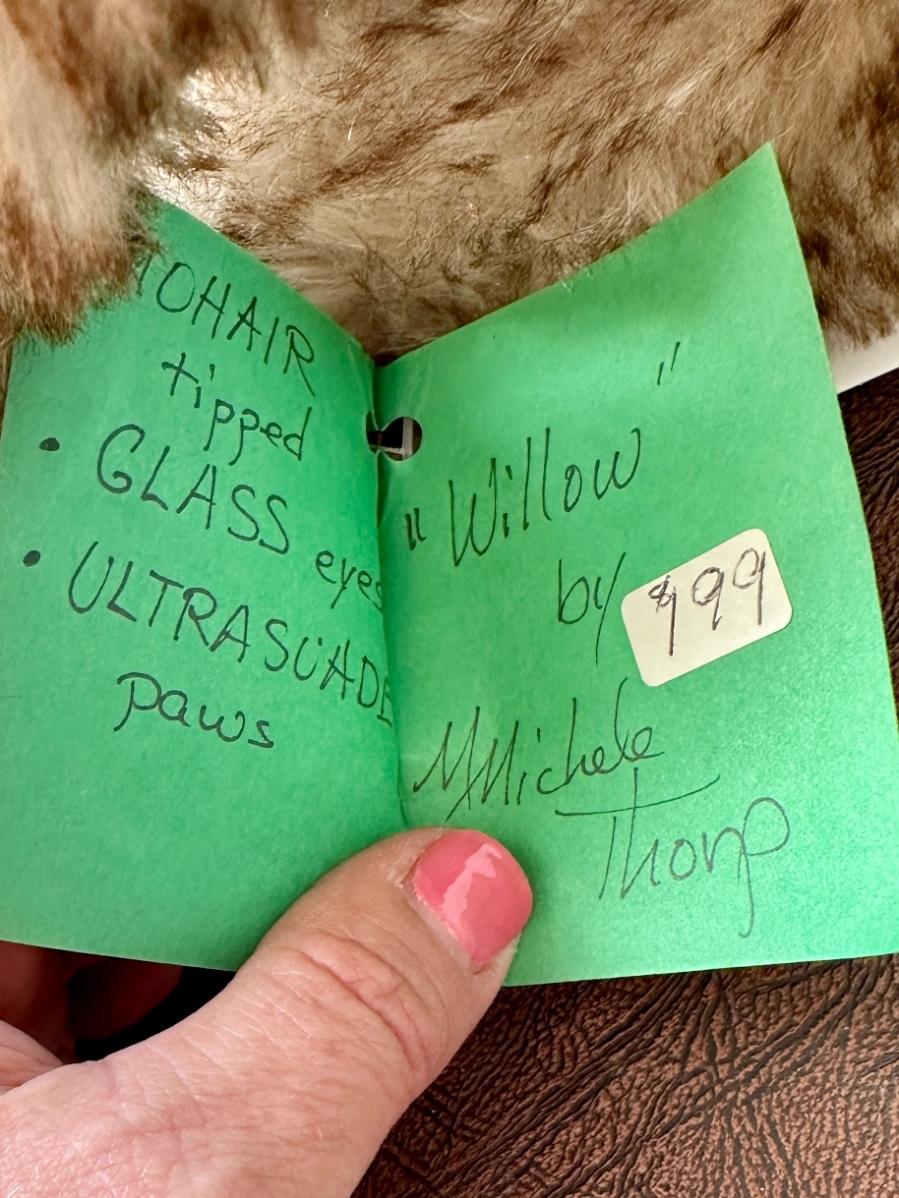 OHAIR
tipped
• GLASS eyes
• ULTRASUADE
paws
"Willow"
by
$99
MMichele
Thorp